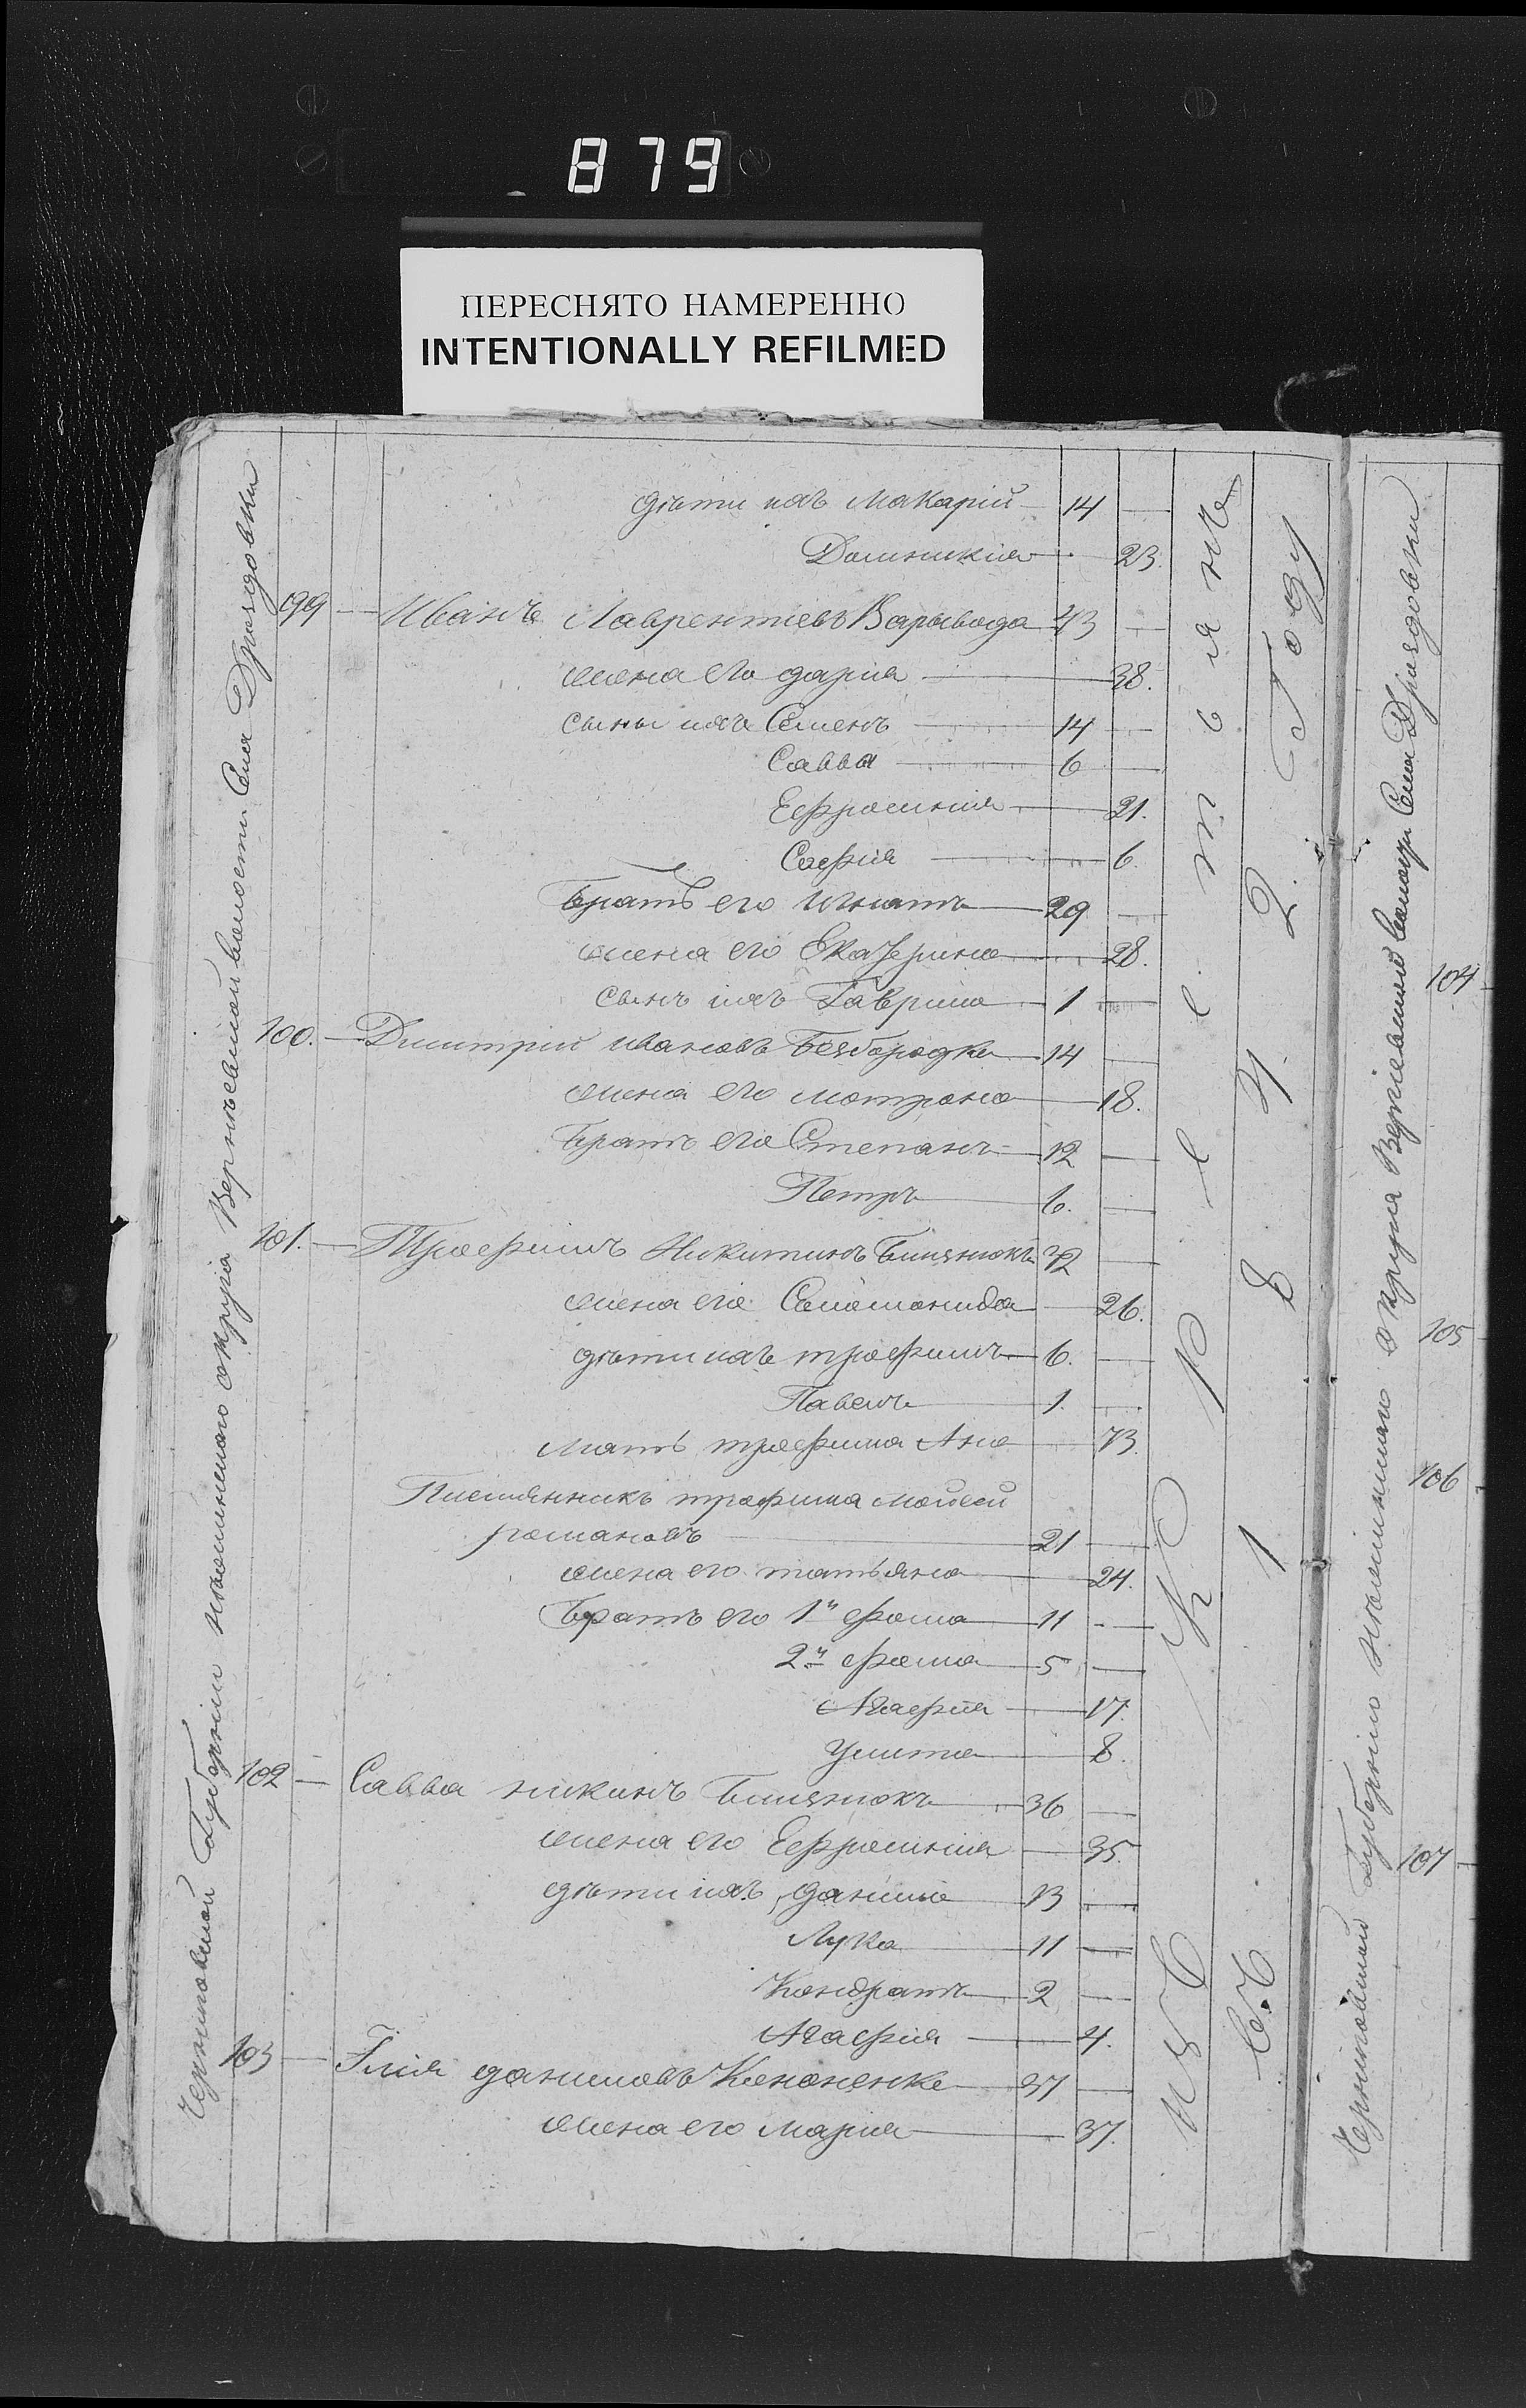 879
ПЕРЕСНЯТО НАМЕРЕННО
INTENTIONALLY REFILMED
Черниговской Губернии нѣжинского округа Вертѣевской волости Села Дроздовки
дѣти ихъ Макарій 14 —
Домникія 23.
99 — Иванъ Лаврентіевъ Варивода 43 —
жена его дарія — 38.
сыны ихъ Семенъ 14 —
Савва 6 —
Ефросинія — 21.
Софія — 6.
братъ его Игнатъ 29 —
жена его Екатерина — 28.
сынъ ихъ Гаврило 1 —
100. — Дмитрій ивановъ Безбородко 14 —
жена его мотрона — 18.
братъ его Степанъ 12 —
Петръ 6. —
101. — Трофимъ Никитинъ 32 —
жена его Соломонида — 26.
дѣти ихъ трофимъ 6. —
Павелъ 1. —
мать трофима Ана — 73.
Племянникъ трофима мойсей
романовъ 21 —
жена его татьяна — 24.
братъ его 1й фома 11 —
2й фома 5 —
Агафія — 17.
улита — 8.
102 — Савва никинъ 36 —
жена его Ефросинія — 35.
дѣти ихъ данило 13 —
Лука 11 —
Кондратъ 2 —
Агафія — 4.
103 — Ілія даниловъ Кононенко 37 —
жена его марія — 37.
изъ крестьянъ
1842. Году
Черниговской Губерніи нѣжинского округа Вертіевской волости Села Дроздовки
104
105
106
107